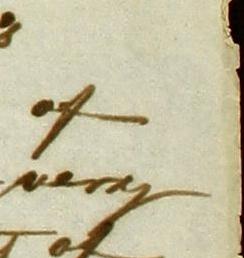 of
very
of